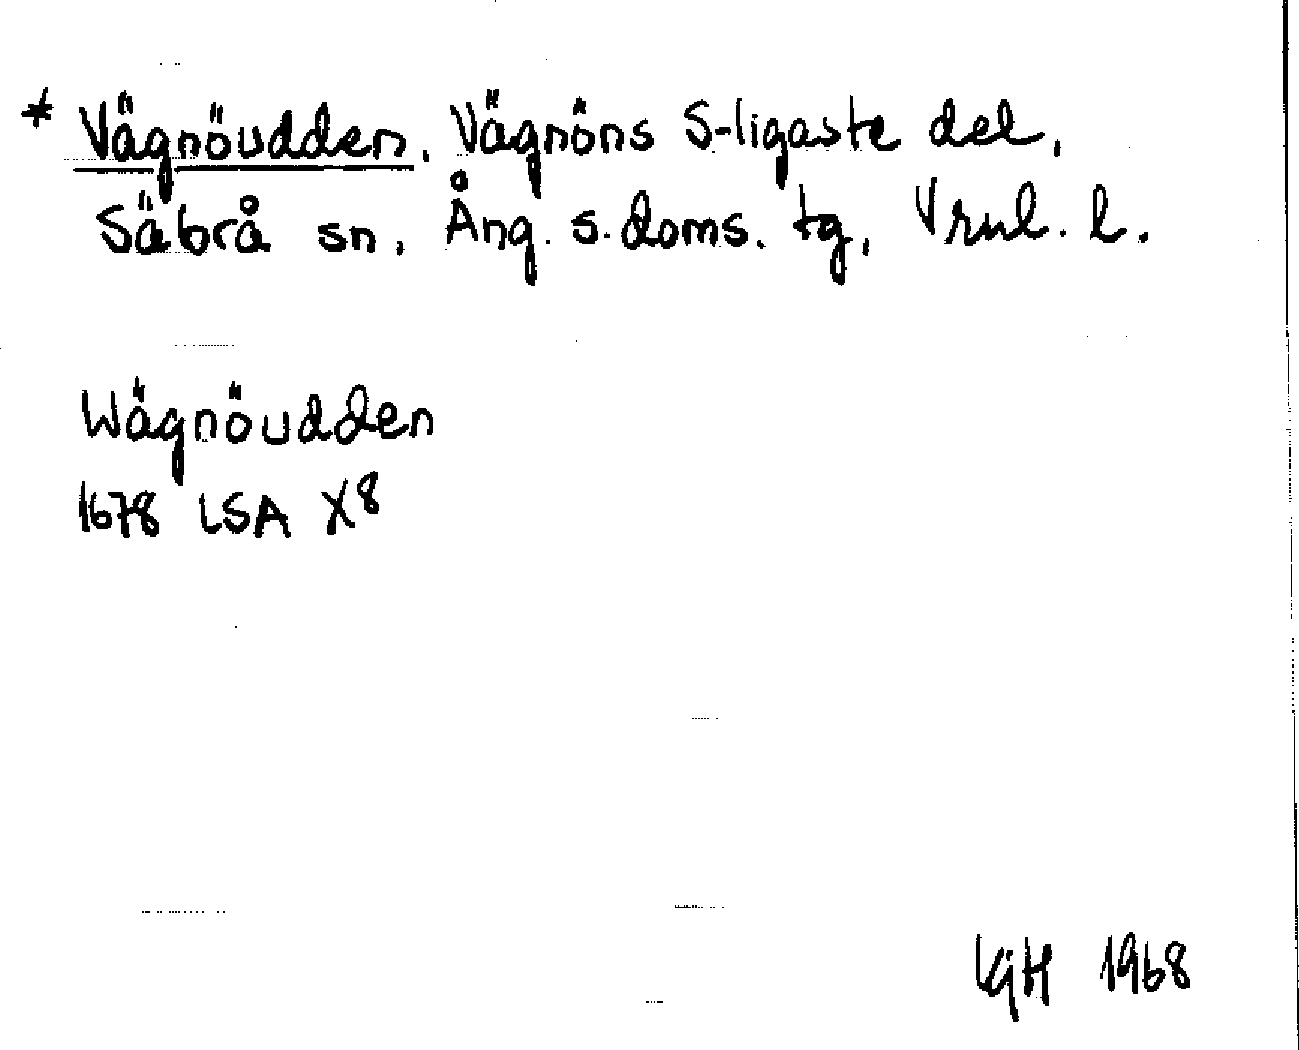 * Vägnöudden. Vägnöns S-ligaste del,
Säbrå sn, Ång. s. doms. tg, Vrnl. l.
Wägnöudden
1678 LSA X8
1968